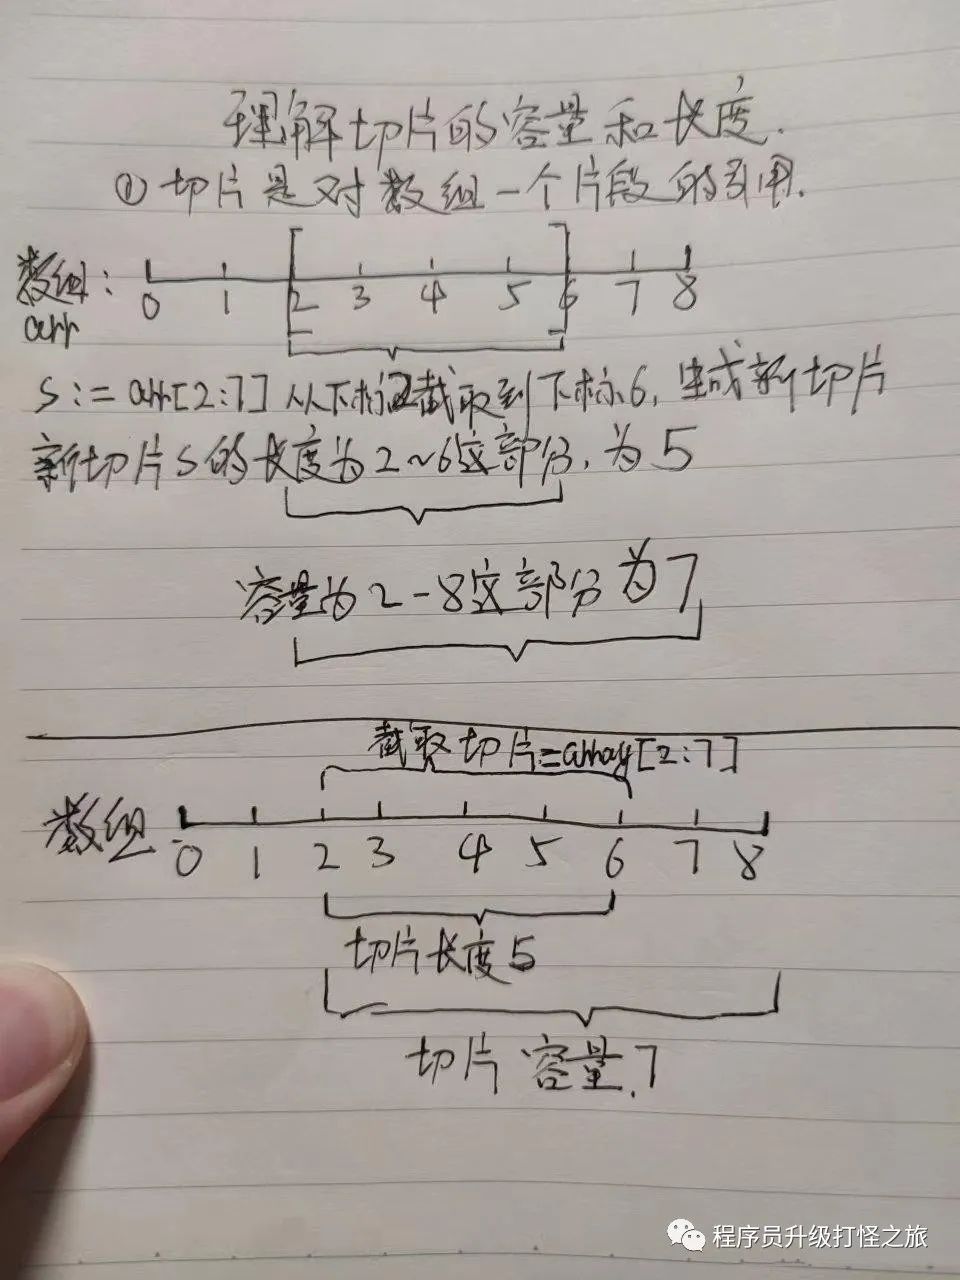 理解切片的容量和长度.
① 切片是对数组一个片段的引用.
数组: 0 1 2 3 4 5 6 7 8
arr
s := arr[2:7] 从下标2截取到下标6, 生成新切片
新切片s的长度为2~6这部分, 为5
容量为2-8这部分为7
截取切片=array[2:7]
数组 0 1 2 3 4 5 6 7 8
切片长度5
切片容量.7
程序员升级打怪之旅